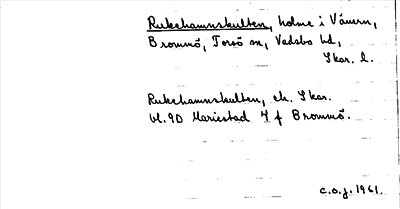 Rukehamnskulten, holme i Vänern,
Brommö, Torsö sn, Vadsbo hd,
Skar. l.
Rukehamnskulten, ek. Skar.
bl. 90 Mariestad 4 f Brommö.
c.o.j. 1961.